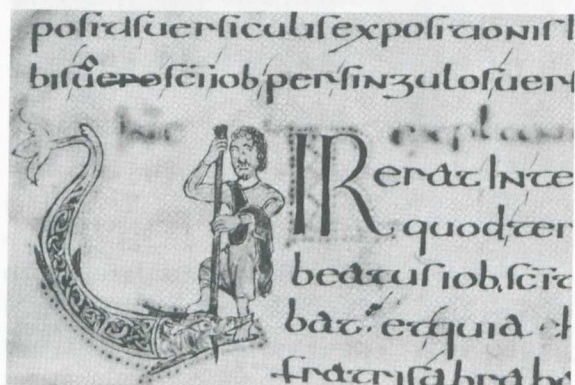 positas uersiculis expositionis
bis sc̄i iob per singulos uer
hic explan
UIR erat Inte
quod, ter
beatus iob, sc̄it
bat. et quia
fratris abra